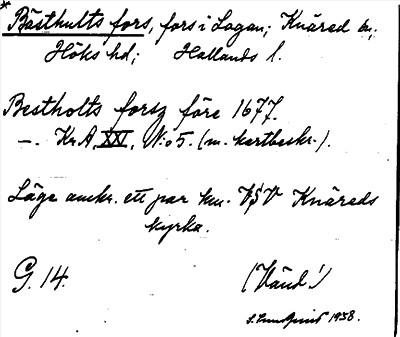 * Bästhults fors, fors i Lagan; Knäred sn;
Höks hd; Hallands l.
Bestholts forsz före 1677.
—. Kr.A XXI, No 5. (m. kartbeskr.).
Läge omkr. ett par km. VSV Knäreds
kyrka.
G. 14. (Vänd!)
S. Lundquist 1938.